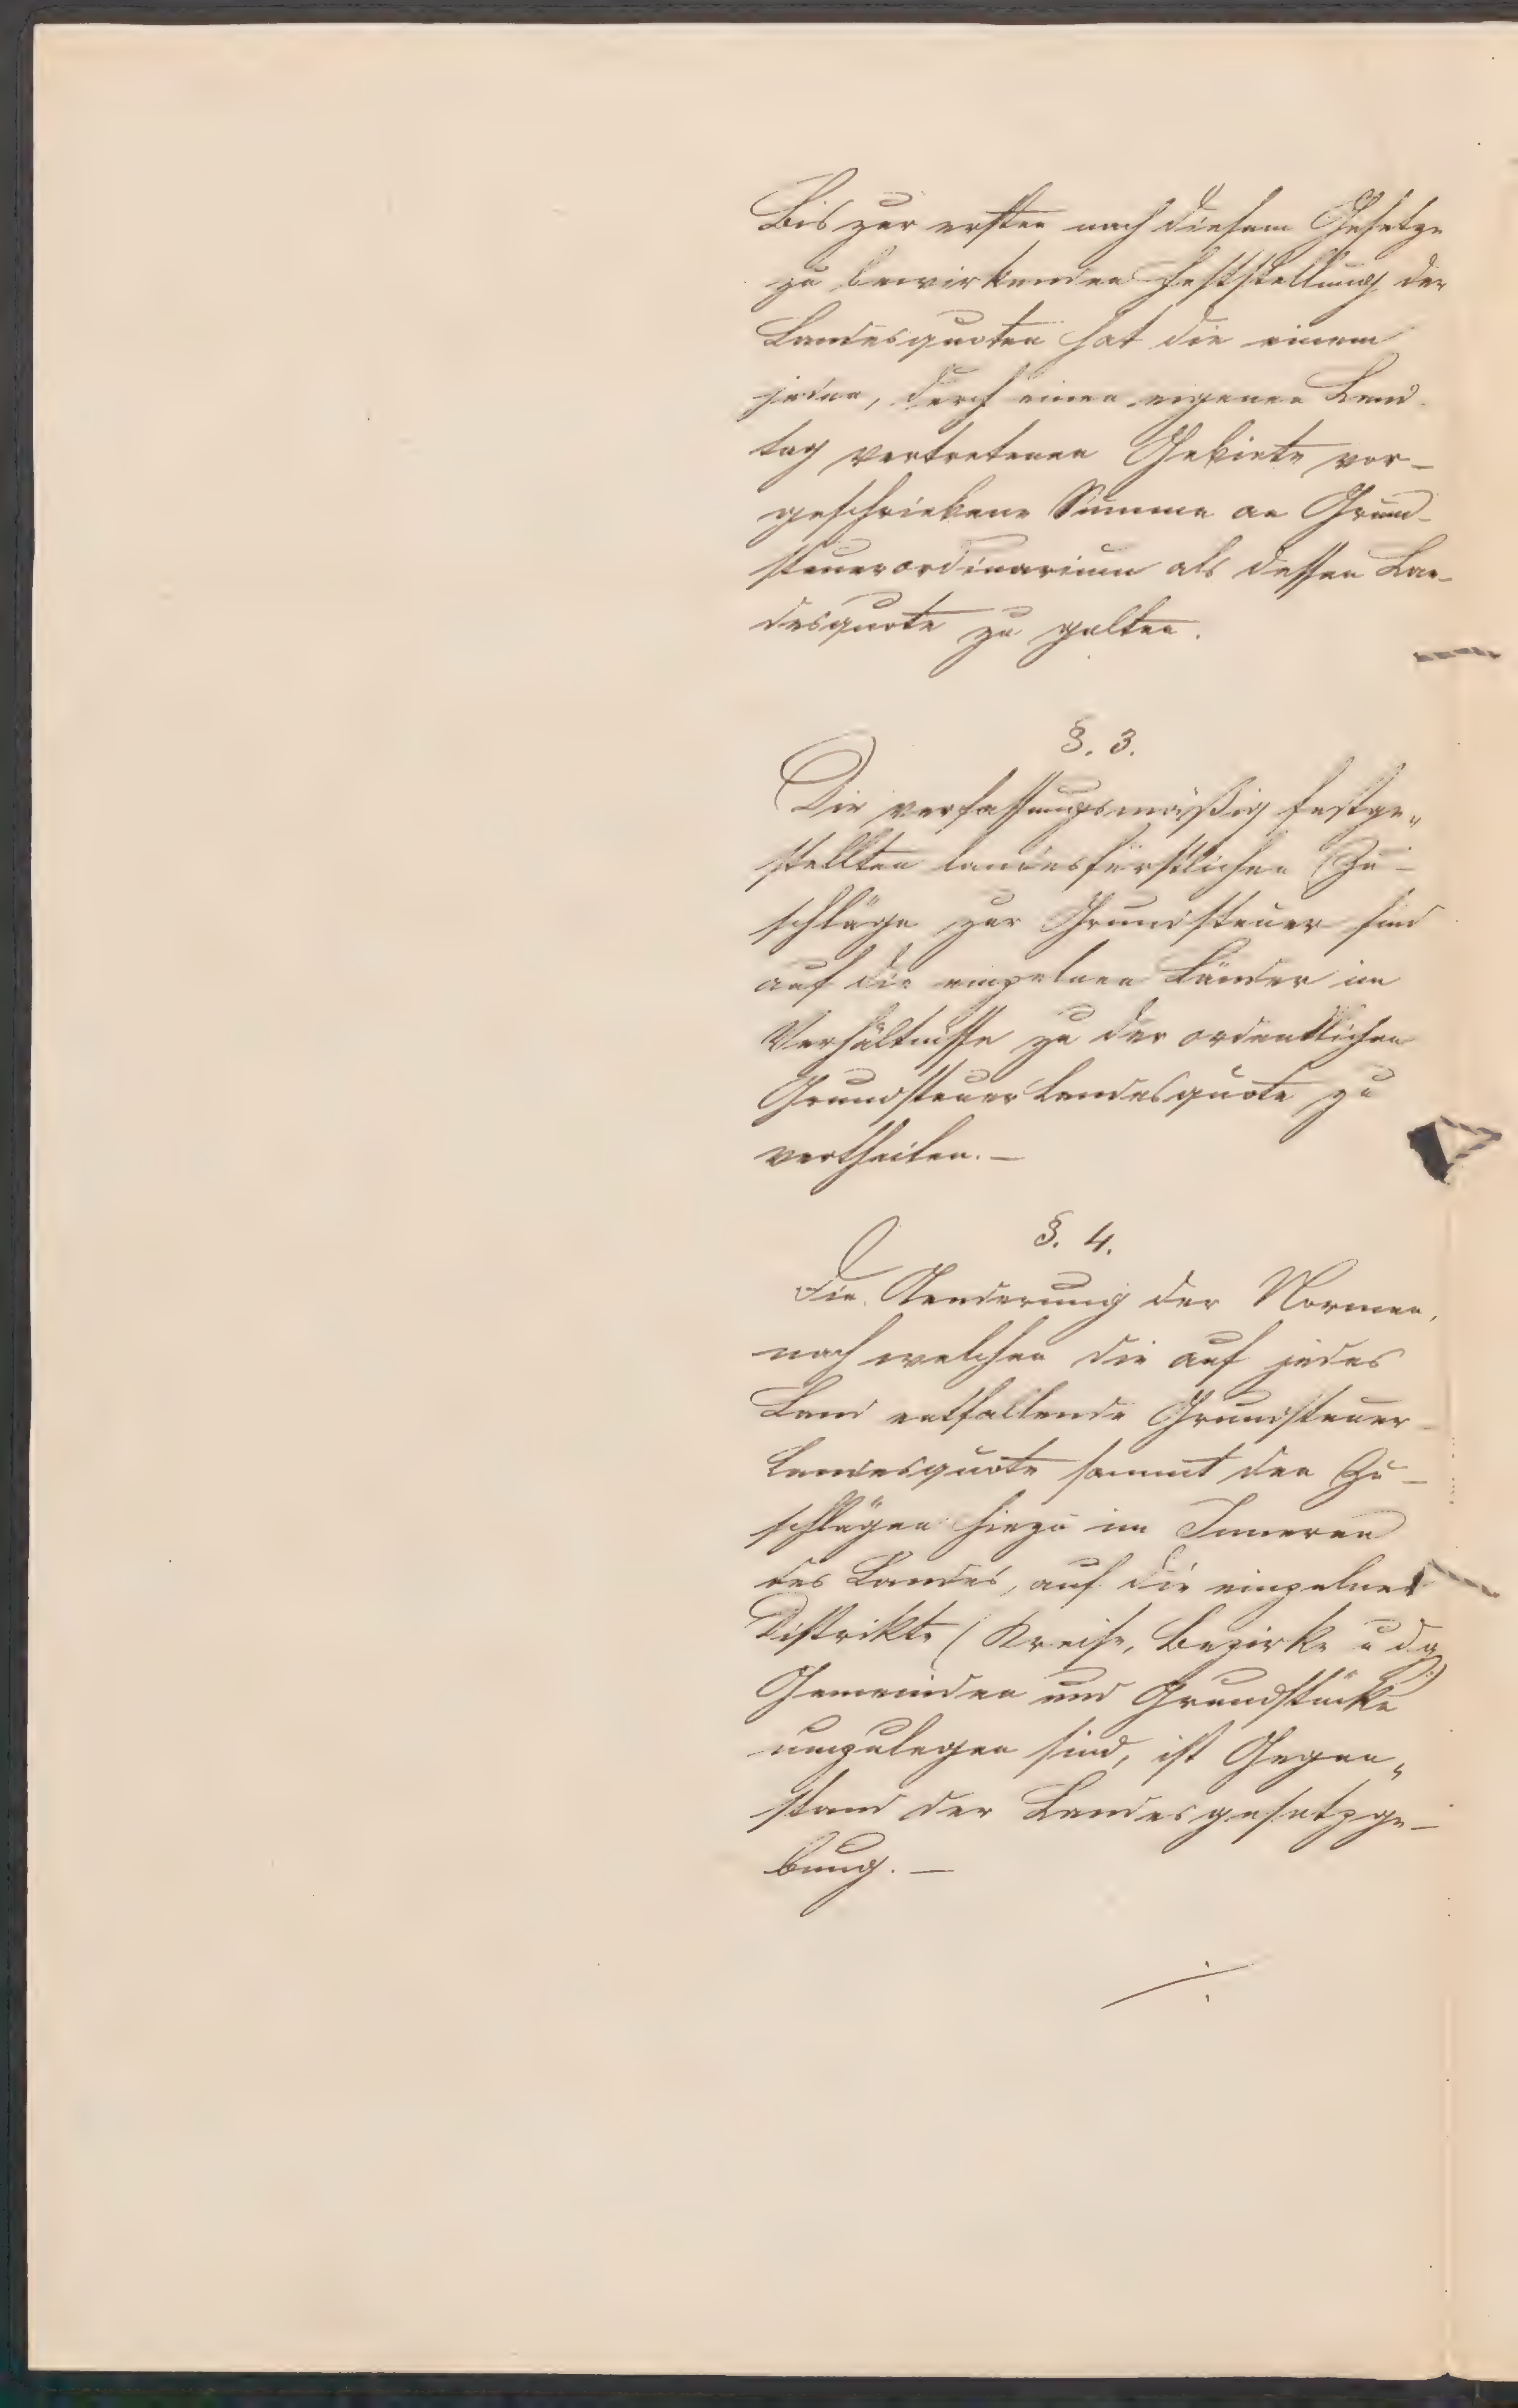 Bis zur ersten nach diesem Gesetze
zu bewirkenden Feststellung der
Landesquoten hat die einem
jeden, durch einen eigenen Land-
tag vertretenen Gebiete vor-
geschriebene Summe an Grund-
steuerordinarium als dessen Lan-
desquote zu gelten.
§. 3.
Die verfassungsmäßig festge„
stellten landesfürstlichen Zu-
schläge zur Grundsteuer sind
auf die einzelnen Länder im
Verhältnisse zu der ordentlichen
Grundsteuerlandesquote zu
vertheilen. —
§. 4.
Die Aenderung der Normen,
nach welchen die auf jedes
Land entfallende Grundsteuer-
landesquote sammt den Zu-
schlägen hiezu im Inneren
des Landes, auf die einzelnen
Distrikte (Kreise, Bezirke u dg.)
Gemeinden und Grundstücke
umzulegen sind, ist Gegen„
stand der Landesgesetzge-
bung. —